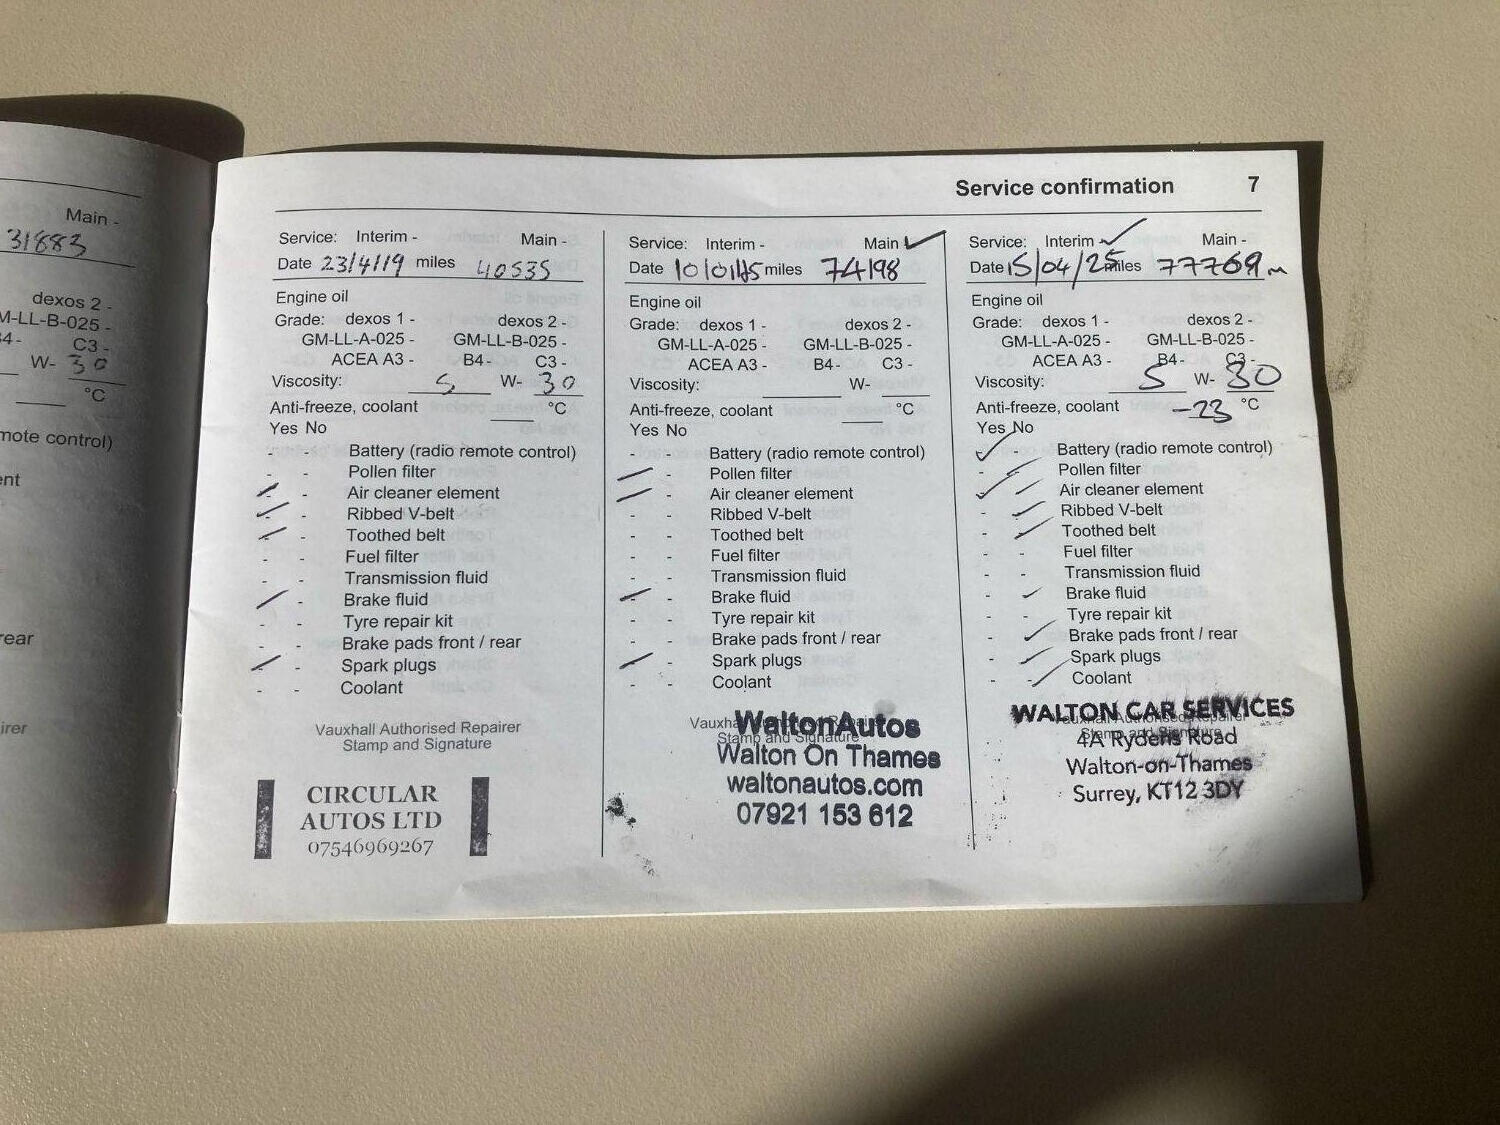 Main -
31883
dexos 2 -
M-LL-B-025 -
C3 -
W- 30
°C
mote control)
ent
rear
irer
Service confirmation 7
Service: Interim - Main -
Date 23/4/19 miles 40535
Engine oil
Grade: dexos 1 - dexos 2 -
GM-LL-A-025 - GM-LL-B-025 -
ACEA A3 - B4 - C3 -
Viscosity: 5 W- 30
Anti-freeze, coolant °C
Yes No
- - Battery (radio remote control)
- - Pollen filter
- - Air cleaner element
- - Ribbed V-belt
- - Toothed belt
- - Fuel filter
- - Transmission fluid
- - Brake fluid
- - Tyre repair kit
- - Brake pads front / rear
- - Spark plugs
- - Coolant
Vauxhall Authorised Repairer
Stamp and Signature
CIRCULAR
AUTOS LTD
07546969267
Service: Interim - Main
Date miles 74198
Engine oil
Grade: dexos 1 - dexos 2 -
GM-LL-A-025 - GM-LL-B-025 -
ACEA A3 - B4 - C3 -
Viscosity: W-
Anti-freeze, coolant °C
Yes No
- - Battery (radio remote control)
- - Pollen filter
- - Air cleaner element
- - Ribbed V-belt
- - Toothed belt
- - Fuel filter
- - Transmission fluid
- - Brake fluid
- - Tyre repair kit
- - Brake pads front / rear
- - Spark plugs
- - Coolant
Vauxhall Authorised Repairer
Stamp and Signature
WaltonAutos
Walton On Thames
waltonautos.com
07921 153 612
Service: Interim - Main -
Date 15/04/25 miles 77769m
Engine oil
Grade: dexos 1 - dexos 2 -
GM-LL-A-025 - GM-LL-B-025 -
ACEA A3 - B4 - C3 -
Viscosity: 5 W- 30
Anti-freeze, coolant -23 °C
Yes No
- - Battery (radio remote control)
- - Pollen filter
- - Air cleaner element
- - Ribbed V-belt
- - Toothed belt
- - Fuel filter
- - Transmission fluid
- - Brake fluid
- - Tyre repair kit
- - Brake pads front / rear
- - Spark plugs
- - Coolant
Vauxhall Authorised Repairer
Stamp and Signature
WALTON CAR SERVICES
4A Rydens Road
Walton-on-Thames
Surrey, KT12 3DY